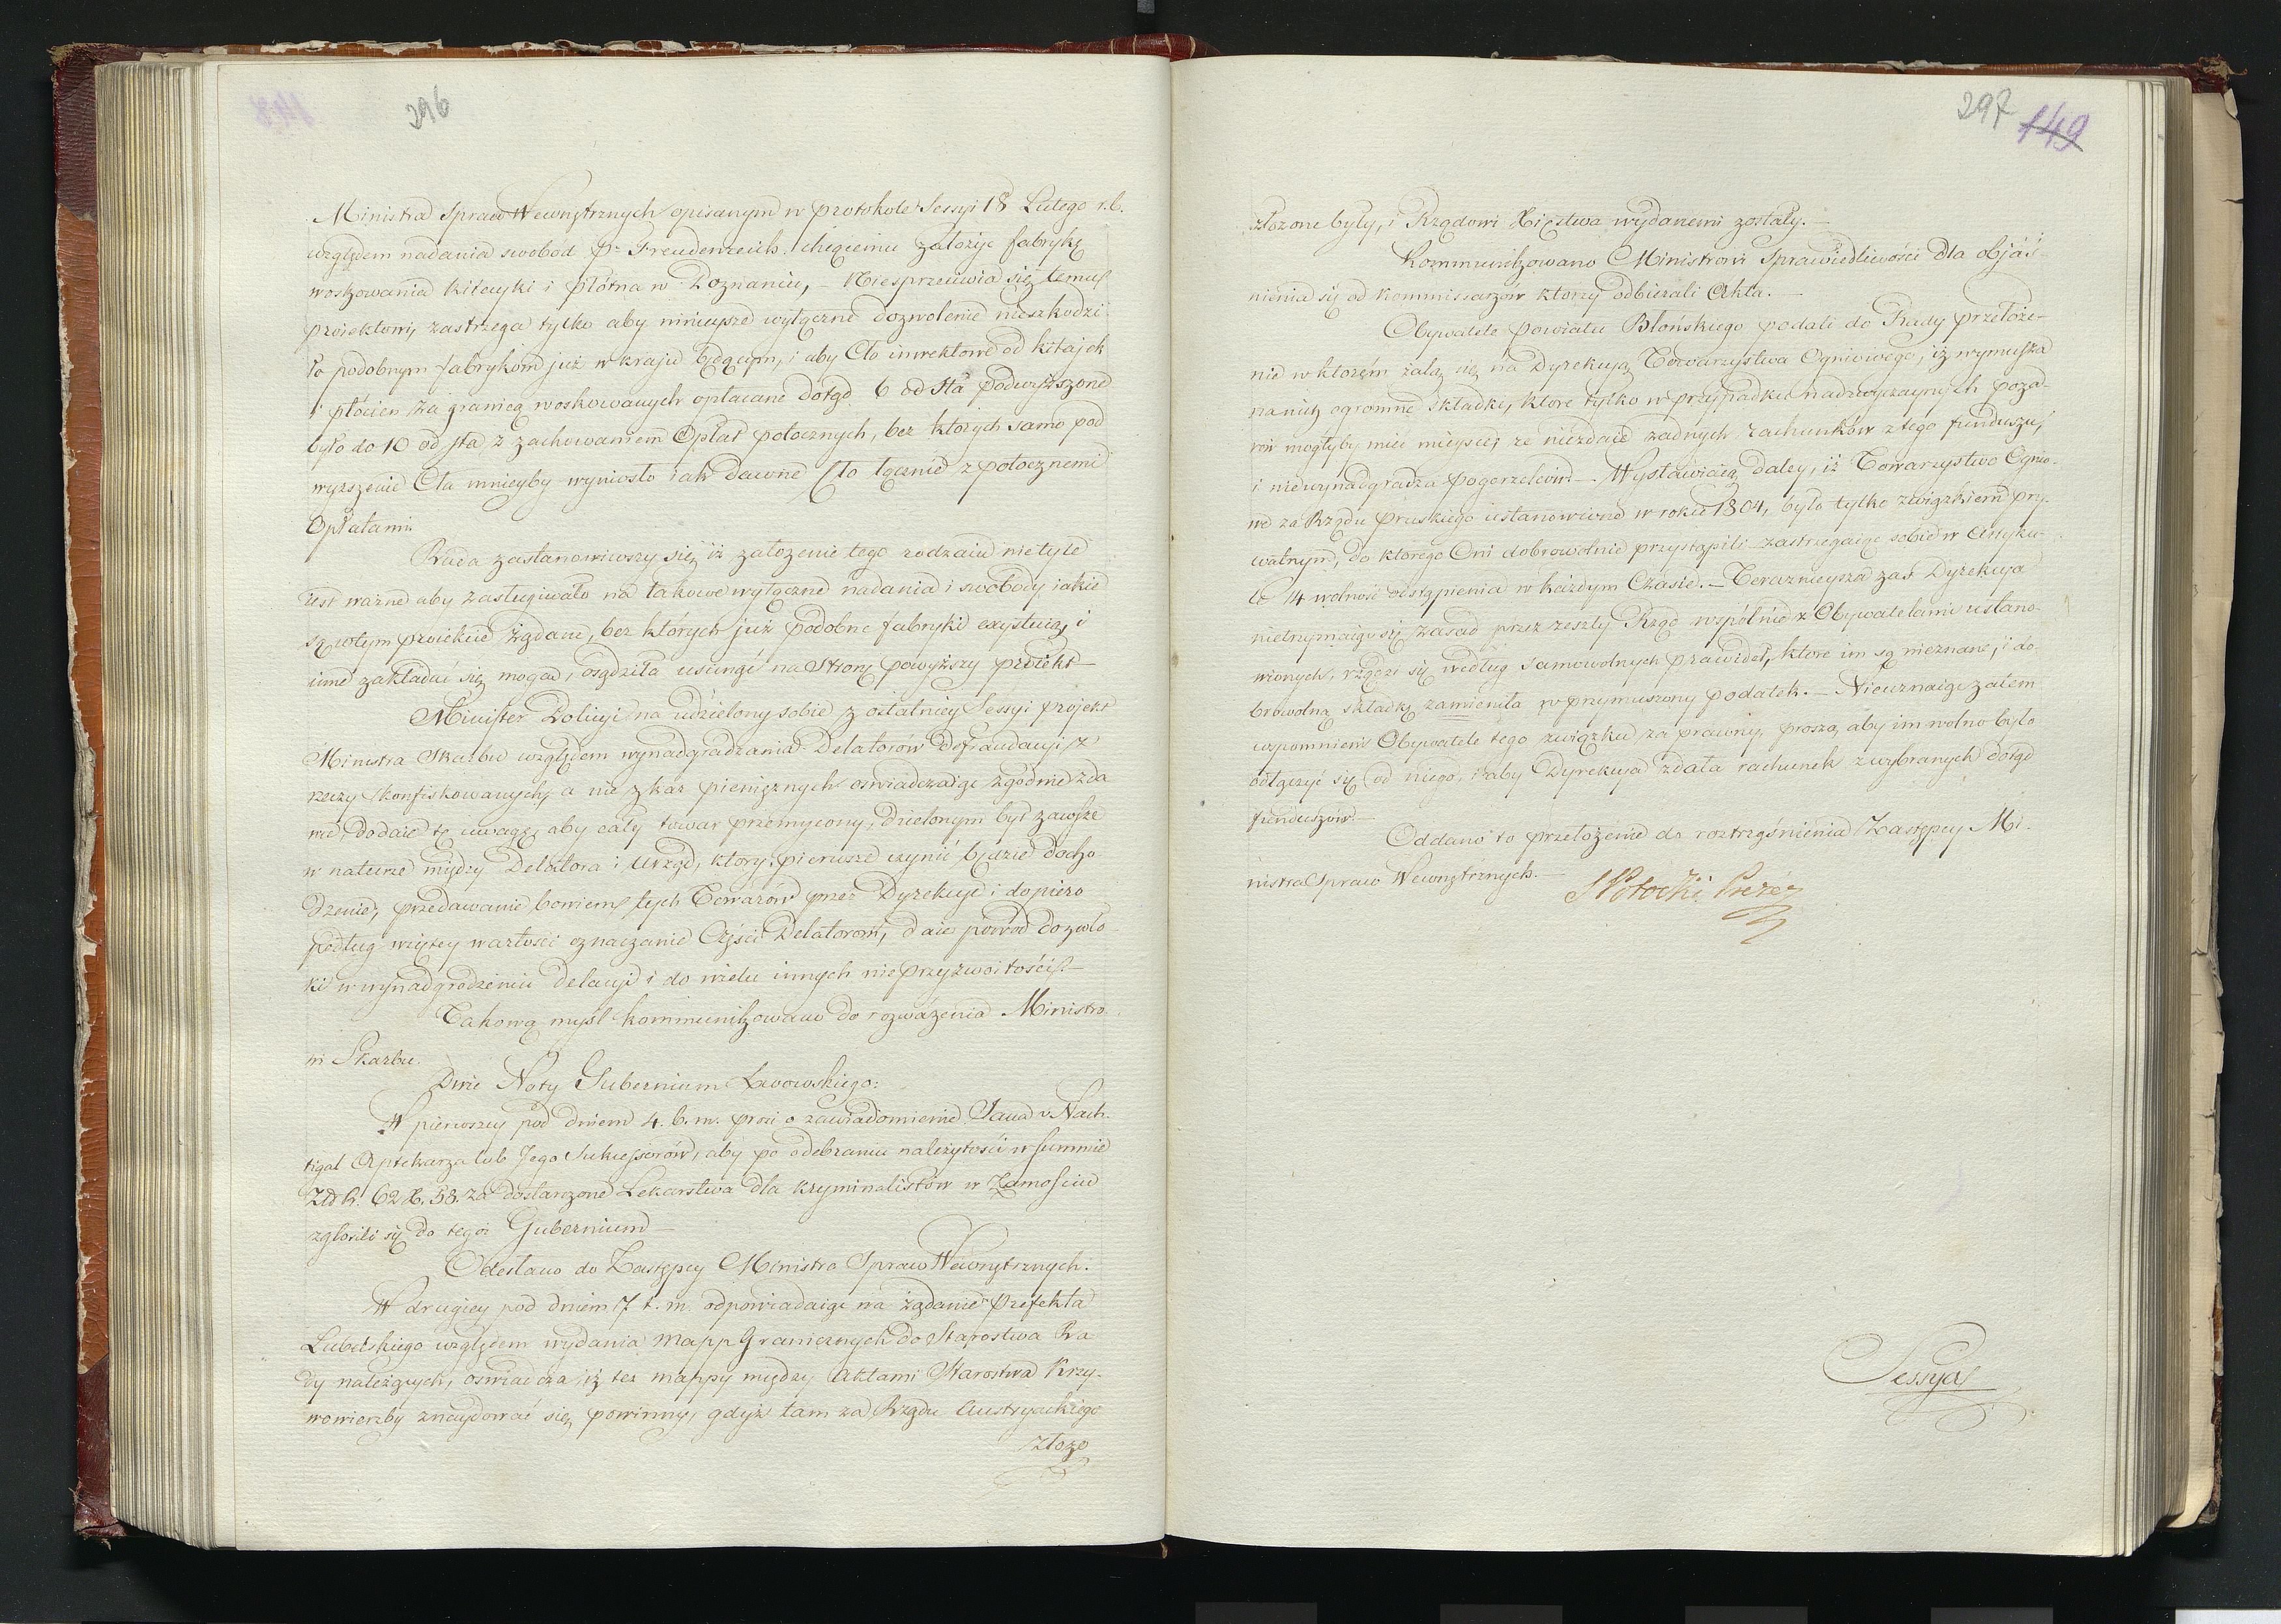 296
Ministra Spraw Wewnętrznych opisanym w protokole Sessyi 18 Lutego r. b.
względem nadania swobod Pu Freudenreich chcącemu założyć fabrykę
woskowania kitayki i płótna w Poznaniu, – Niesprzeciwia się temuż
proiektowi, zastrzega tylko aby ninieysze wyłączne dozwolenie nieszkodzi-
ło podobnym fabrykom już w kraju będącym, i aby Cło inwektowe od kitajek
i płócien za granicą woskowanych opłacane dotąd 6 od sta podwyższone
było do 10 od sta, z zachowaniem Opłat potocznych, bez których samo pod
wyższenie Cła mnieyby wyniosło iak dawne Cło łącznie z potocznemi
Opłatami.
Rada zastanowiwszy się, iż założenie tego rodzaiu nie tyle
iest ważne aby zasługiwało na takowe wyłączne nadania i swobody iakie
są w tym proiekcie żądane, bez których już podobne fabryki exystuią, i
inne zakładać się mogą, osądziła usunąć na stronę powyższy proiekt –
Minister Policyi na udzielony sobie z ostatniey Sessyi projekt
Ministra Skarbu względem wynadgradzania Delatorów Defraudacyi z
rzeczy skonfiskowanych, a nie z kar pieniężnych oswiadczaiąc zgodne zda
nie, dodaie tę uwagę, aby cały towar przemycony, dzielonym był zawsze
w naturze między Delatora i Urząd, który pierwsze czynić będzie docho
dzenie, przedawanie bowiem tych Towarów przez Dyrekcye i dopiero
podług wziętey wartości oznaczanie Części Delatorom, daie powód do zwło
ki w wynadgrodzeniu Delacyi i do wielu innych nieprzyzwoitości. –
Takową myśl kommunikowano do rozważenia Ministro
wi Skarbu.
Dwie Noty Gubernium Lwowskiego:
W pierwszey pod dniem 4. b. m. prosi o zawiadomienie Jana v. Nach-
tigal Aptekarza lub Jego Sukcessorów, aby po odebraniu należytości w summie
62 58. za dostarczone Lekarstwa dla kryminalistów w Zamościu
zgłosili się do tegoż Gubernium –
Odesłano do Zastępcy Ministra Spraw Wewnętrznych.
W drugiey pod dniem 7 t. m. odpowiadaiąc na żądanie Prefekta
Lubelskiego względem wydania Mapp Granicznych do Starostwa Ra
dy należących, oswiadcza, iż też mappy między Aktami Starostwa Krzy-
wowierzby znaydować się, powinny, gdyż tam za Rządu Austryackiego
złożo
297 149
złożone były, i Rządowi Xięstwa wydanemi zostały. –
Kommunikowano Ministrowi Sprawiedliwości dla objaś-
nienia się od Kommissarzów którzy odbierali Akta. –
Obywatele Powiatu Błońskiego podali do Rady przełoże-
nie w którém żalą się na Dyrekcyą Towarzystwa Ogniowego, iż wymusza
na nich ogromne składki, które tylko w przypadku nadzwyczaynych poża-
rów mogłyby mieć mieysce, że niezdaie żadnych rachunków z tego funduszu,
i niewynadgradza pogorzelców. – Wystawiaią daley, iż Towarzystwo Ognio-
we za Rządu Pruskiego ustanowione w roku 1804, było tylko związkiem pry-
watnym, do którego Oni dobrowolnie przystąpili zastrzegaiąc sobie w Artyku-
le 14 wolność odstąpienia w każdym Czasie. – Teraznieysza zaś Dyrekcya
nietrzymaiąc się zasad przez zeszły Rząd wspólnie z Obywatelami ustano-
wionych, rządzi się według samowolnych prawideł, które im są nieznane, i do-
browolną składkę zamieniła w przymuszony podatek. – Nieuznaiąc zatem
wspomnieni Obywatele tego związku za prawny, proszą, aby im wolno było
odłączyć się od niego, i aby Dyrekcya zdała rachunek z wybranych dotąd
funduszów. –
Oddano to przełożenie do roztrząśnienia Zastępcy Mi-
nistra Spraw Wewnętrznych. –
S Potocki Prezes
Sessya